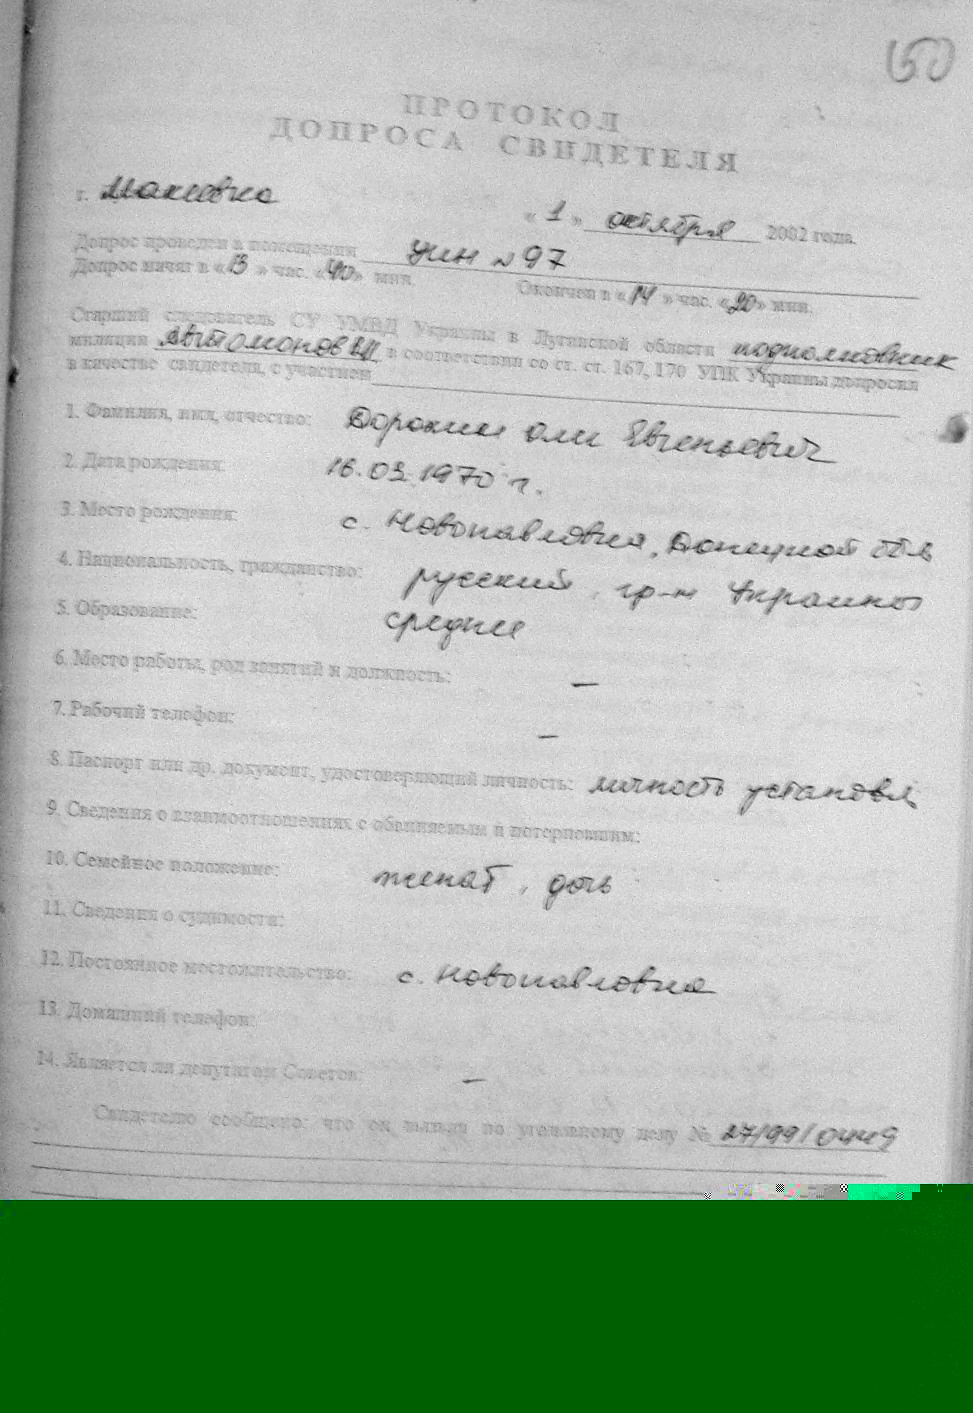 150
ПРОТОКОЛ
ДОПРОСА СВИДЕТЕЛЯ
г. Макеевка
« 1 » октября 2002 года.
Допрос проведен в помещении УИН № 97
Допрос начат в « 13 » час. « 40 » мин. Окончен в « 14 » час. « 20 » мин.
Старший следователь СУ УМВД Украины в Луганской области подполковник
милиции Автомонов в соответствии со ст. ст. 167, 170 УПК Украины допросил
в качестве свидетеля, с участием
1. Фамилия, имя, отчество: Дорохин Евгеньевич
2. Дата рождения: 16.03.1970 г.
3. Место рождения: с. Новопавловка, Донецкой обл
4. Национальность, гражданство: русский, гр-н Украины
5. Образование: среднее
6. Место работы, род занятий и должность: —
7. Рабочий телефон: —
8. Паспорт или др. документ, удостоверяющий личность: личность установл
9. Сведения о взаимоотношениях с обвиняемым и потерпевшим:
10. Семейное положение: женат, дочь
11. Сведения о судимости:
12. Постоянное местожительство: с. Новопавловка
13. Домашний телефон:
14. Является ли депутатом Советов: —
Свидетелю сообщено: что он вызван по уголовному делу № 27/99/0449